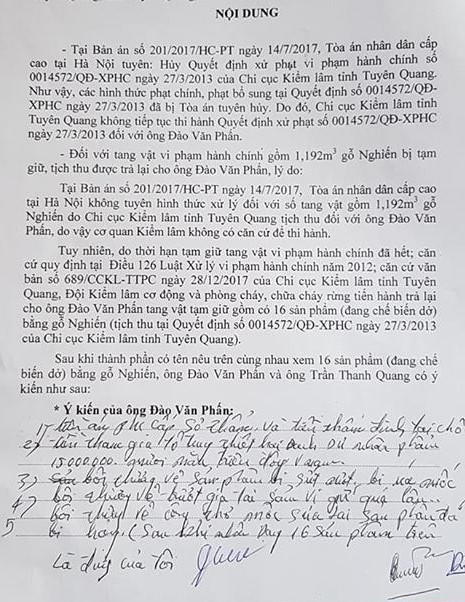 NỘI DUNG
- Tại Bản án số 201/2017/HC-PT ngày 14/7/2017, Tòa án nhân dân cấp
cao tại Hà Nội tuyên: Hủy Quyết định xử phạt vi phạm hành chính số
0014572/QĐ-XPHC ngày 27/3/2013 của Chi cục Kiểm lâm tỉnh Tuyên Quang.
Như vậy, các hình thức phạt chính, phạt bổ sung tại Quyết định số 0014572/QĐ-
XPHC ngày 27/3/2013 đã bị Tòa án tuyên hủy. Do đó, Chi cục Kiểm lâm tỉnh
Tuyên Quang không tiếp tục thi hành Quyết định xử phạt số 0014572/QĐ-XPHC
ngày 27/3/2013 đối với ông Đào Văn Phấn.
- Đối với tang vật vi phạm hành chính gồm 1,192m³ gỗ Nghiến bị tạm
giữ, tịch thu được trả lại cho ông Đào Văn Phấn, lý do:
Tại Bản án số 201/2017/HC-PT ngày 14/7/2017, Tòa án nhân dân cấp cao
tại Hà Nội không tuyên hình thức xử lý đối với số tang vật gồm 1,192m³ gỗ
Nghiến do Chi cục Kiểm lâm tỉnh Tuyên Quang tịch thu đối với ông Đào Văn
Phấn, do vậy cơ quan Kiểm lâm không có căn cứ để thi hành.
Tuy nhiên, do thời hạn tạm giữ tang vật vi phạm hành chính đã hết; căn
cứ quy định tại Điều 126 Luật Xử lý vi phạm hành chính năm 2012; căn cứ văn
bản số 689/CCKL-TTPC ngày 28/12/2017 của Chi cục Kiểm lâm tỉnh Tuyên
Quang, Đội Kiểm lâm cơ động và phòng cháy, chữa cháy rừng tiến hành trả lại
cho ông Đào Văn Phấn tang vật tạm giữ gồm có 16 sản phẩm (đang chế biến dở)
bằng gỗ Nghiến (tịch thu tại Quyết định số 0014572/QĐ-XPHC ngày 27/3/2013
của Chi cục Kiểm lâm tỉnh Tuyên Quang).
Sau khi thành phần có tên nêu trên cùng nhau xem 16 sản phẩm (đang chế
biến dở) bằng gỗ Nghiến, ông Đào Văn Phấn và ông Trần Thanh Quang có ý
kiến như sau:
* Ý kiến của ông Đào Văn Phấn:
1) tiền án phí cấp sơ thẩm và tiền thẩm định tại chỗ
2) tiền tham gia tố tụng thiệt hại danh dự nhân phẩm
15000.000. mười năm triệu
3) bồi thường về sản phẩm bị sứt
4) bồi thường về
5 bồi thường về công thợ mộc sửa lại sản phẩm đã
bị hỏng. (Sau khi nhận đúng 16 sản phẩm trên
là đúng của tôi